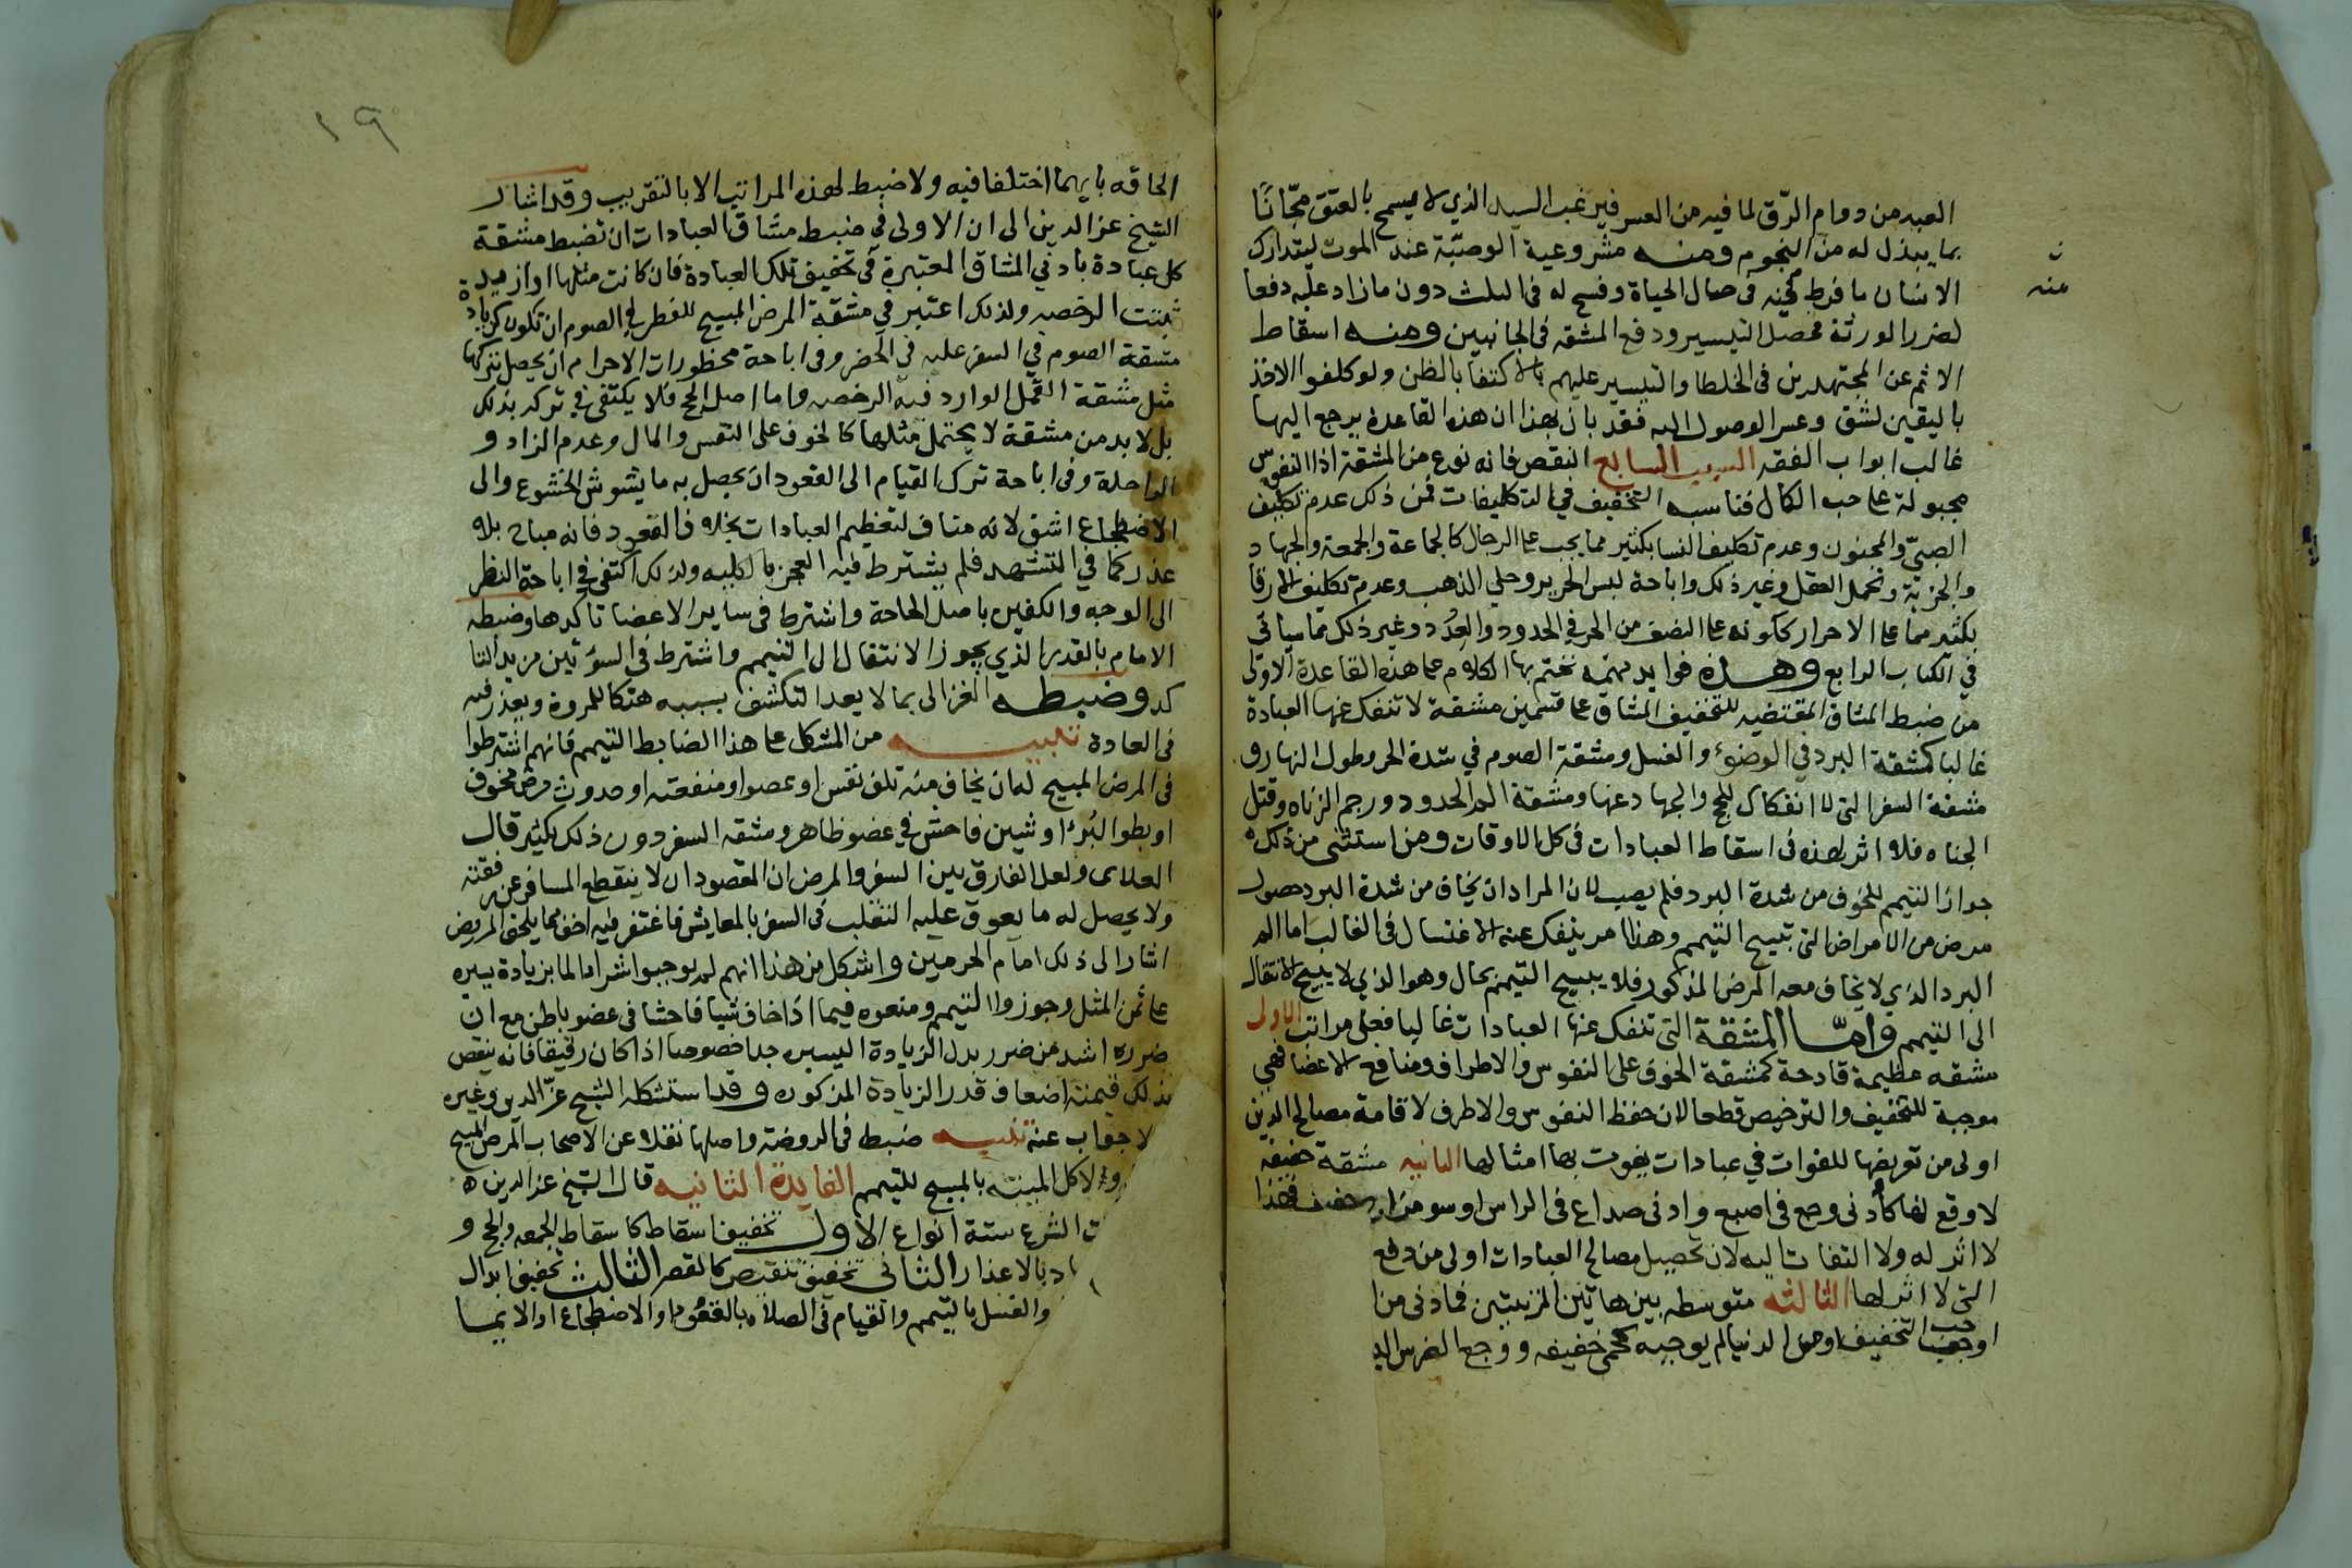 العبد من دوام الرق لما فيه من العسر فيرغب السيد الذي لا يسمح بالعتق مجانا
بما يبذل له من النجوم ومنه مشروعية الوصية عند الموت ليتدارك
الانسان ما فرط منه في حال الحياة وفسح له في الثلث دون ما زاد عليه دفعا
لضرر الورثة فحصل التيسير ودفع المشقه في الجانبين ومنه اسقاط
الاثم عن المجتهدين في الخطا والتيسير عليهم بالاكتفا بالظن ولو كلفوا الاخذ
باليقين لشق وعسر الوصول اليه فقد بان بهذا ان هذه القاعدة يرجع اليها
غالب ابواب الفقه السبب السابع النقص فانه نوع من المشقة اذا النفوس
مجبولة على حب الكمال فناسبه التخفيف في التكليفات فمن ذلك عدم تكليف
الصبي والمجنون وعدم تكليف النسا بكثير مما يجب على الرجال كالجماعة والجمعة والجهاد
والجزية وتحمل العقل وغير ذلك واباحة لبس الحرير وحلي الذهب وعدم تكليف الارقا
بكثير مما على الاحرار ككونه على النصف من الحر في الحدود والعدد وغير ذلك مما سياتي
في الكتاب الرابع وهذه فوايد مهمه نختم بها الكلام على هذه القاعدة الاولى
من ضبط المشاق المقتضيه للتخفيف المشاق على قسمين مشقة لا تنفك عنها العبادة
غالبا كمشقة البرد في الوضوء والغسل ومشقة الصوم في شدة الحر وطول النهار و
مشقة السفر التي لا انفكاك للحج والجهاد عنها ومشقة الم الحدود ورجم الزناه وقتل
الجناه فلا اثر لهذه في اسقاط العبادات في كل الاوقات ومن استثنى من ذلك
جواز التيمم للخوف من شدة البرد فلم يصب لان المراد ان يخاف من شدة البرد حصول
مرض من الامراض التي تبيح التيمم وهذا امر ينفك عنه الاغتسال في الغالب اما الم
البرد الذي لا يخاف معه المرض المذكور فلا يبيح التيمم بحال وهو الذي لا يبيح الانتقال
الى التيمم واما المشقة التي تنفك عنها العبادات غالبا فعلى مراتب الاولى
مشقه عظيمة قادحة كمشقة الخوف على النفوس والاطراف ومنافع الاعضا فهي
موجبة للتخفيف والترخيص قطعا لان حفظ النفوس والاطرف لاقامة مصالح الدين
اولى من تعريضها للفوات في عبادات يفوت بها امثالها الثانيه مشقة خفيفه
لا وقع لها كادنى وجع في اصبع وادنى صداع في الراس او سو مزاج خفيف فهذا
لا اثر له ولا التفات اليه لان تحصيل مصالح العبادات اولى من دفع
التي لا اثر لها الثالثه متوسطه بين هاتين المرتبتين فما دنى من ا
اوجب التخفيف او من الدنيا لم يوجبه كحمى خفيفه ووجع الضرس الي
ن
منه
١٩
الحاقه بايهما اختلفا فيه ولا ضبط لهذه المراتب الا بالتقريب وقد اشار
الشيخ عز الدين الى ان الاولى في ضبط مشاق العبادات ان تضبط مشقة
كل عبادة بادني المشاق المعتبرة في تخفيف تلك العبادة فان كانت مثلها او ازيد
ثبتت الرخصه ولذلك اعتبر في مشقة المرض المبيح للفطر في الصوم ان تكون كزيادة
مشقة الصوم في السفر عليه في الحضر وفي اباحة محظورات الاحرام ان يحصل بتركها
مثل مشقة القمل الوارد فيه الرخصه واما اصل الحج فلا يكتفى في تركه بذلك
بل لا بد من مشقة لا يحتمل مثلها كالخوف على النفس والمال وعدم الزاد و
الراحلة وفي اباحة ترك القيام الى القعود ان يحصل به ما يشوش الخشوع والى
الاضطجاع اشق لانه مناف لتعظيم العبادات بخلاف القعود فانه مباح بلا
عذر كما في التشهد فلم يشترط فيه العجز بالكليه ولذلك اكتفي في اباحة النظر
الى الوجه والكفين باصل الحاجة واشترط في ساير الاعضا تاكدها وضبطه
الامام بالقدر الذي يجوز الانتقال الى التيمم واشترط في السوتين مزيد التا
كد وضبطه الغزالى بما لا يعد التكشف بسببه هتكا للمروة ويعذر فيه
في العادة تنبيه من المشكل على هذا الضابط التيمم فانهم اشترطوا
في المرض المبيح له ان يخاف منه تلف نفس او عضو او منفعته او حدوث مرض مخوف
او بطوا البرء او شين فاحش في عضو ظاهر ومشقه السفر دون ذلك بكثير قال
العلاى ولعل الفارق بين السفر والمرض ان المقصود ان لا ينقطع المسافر عن رفقته
ولا يحصل له ما يعوق عليه التقلب في السفر بالمعايش فاغتفر فيه اخف مما يلحق المريض
اشار الى ذلك امام الحرمين واشكل من هذا انهم لم يوجبوا شرا الما بزيادة يسيره
على ثمن المثل وجوزوا التيمم ومنعوه فيما اذا خاف شيا فاحشا في عضو باطن مع ان
ضرره اشد من ضرر بدل الزيادة اليسيره جدا خصوصا اذا كان رقيقا فانه ينقص
بذلك قيمته اضعاف قدر الزيادة المذكوره وقد استشكله الشيخ عز الدين وغيره
لا جواب عنه تنبيه ضبط في الروضة واصلها نقلا عن الاصحاب المرض المبيح
ولاكل الميتة بالمبيح للتيمم الفايدة الثانيه قال الشيخ عز الدين
ت الشرع ستة انواع الاول تخفيف اسقاط كاسقاط الجمعه والحج و
اد بالاعذار الثانى تخفيف تنقيص كالقصر الثالث تخفيف ابدال
والغسل بالتيمم والقيام في الصلاه بالقعود او الاضطجاع او الايما